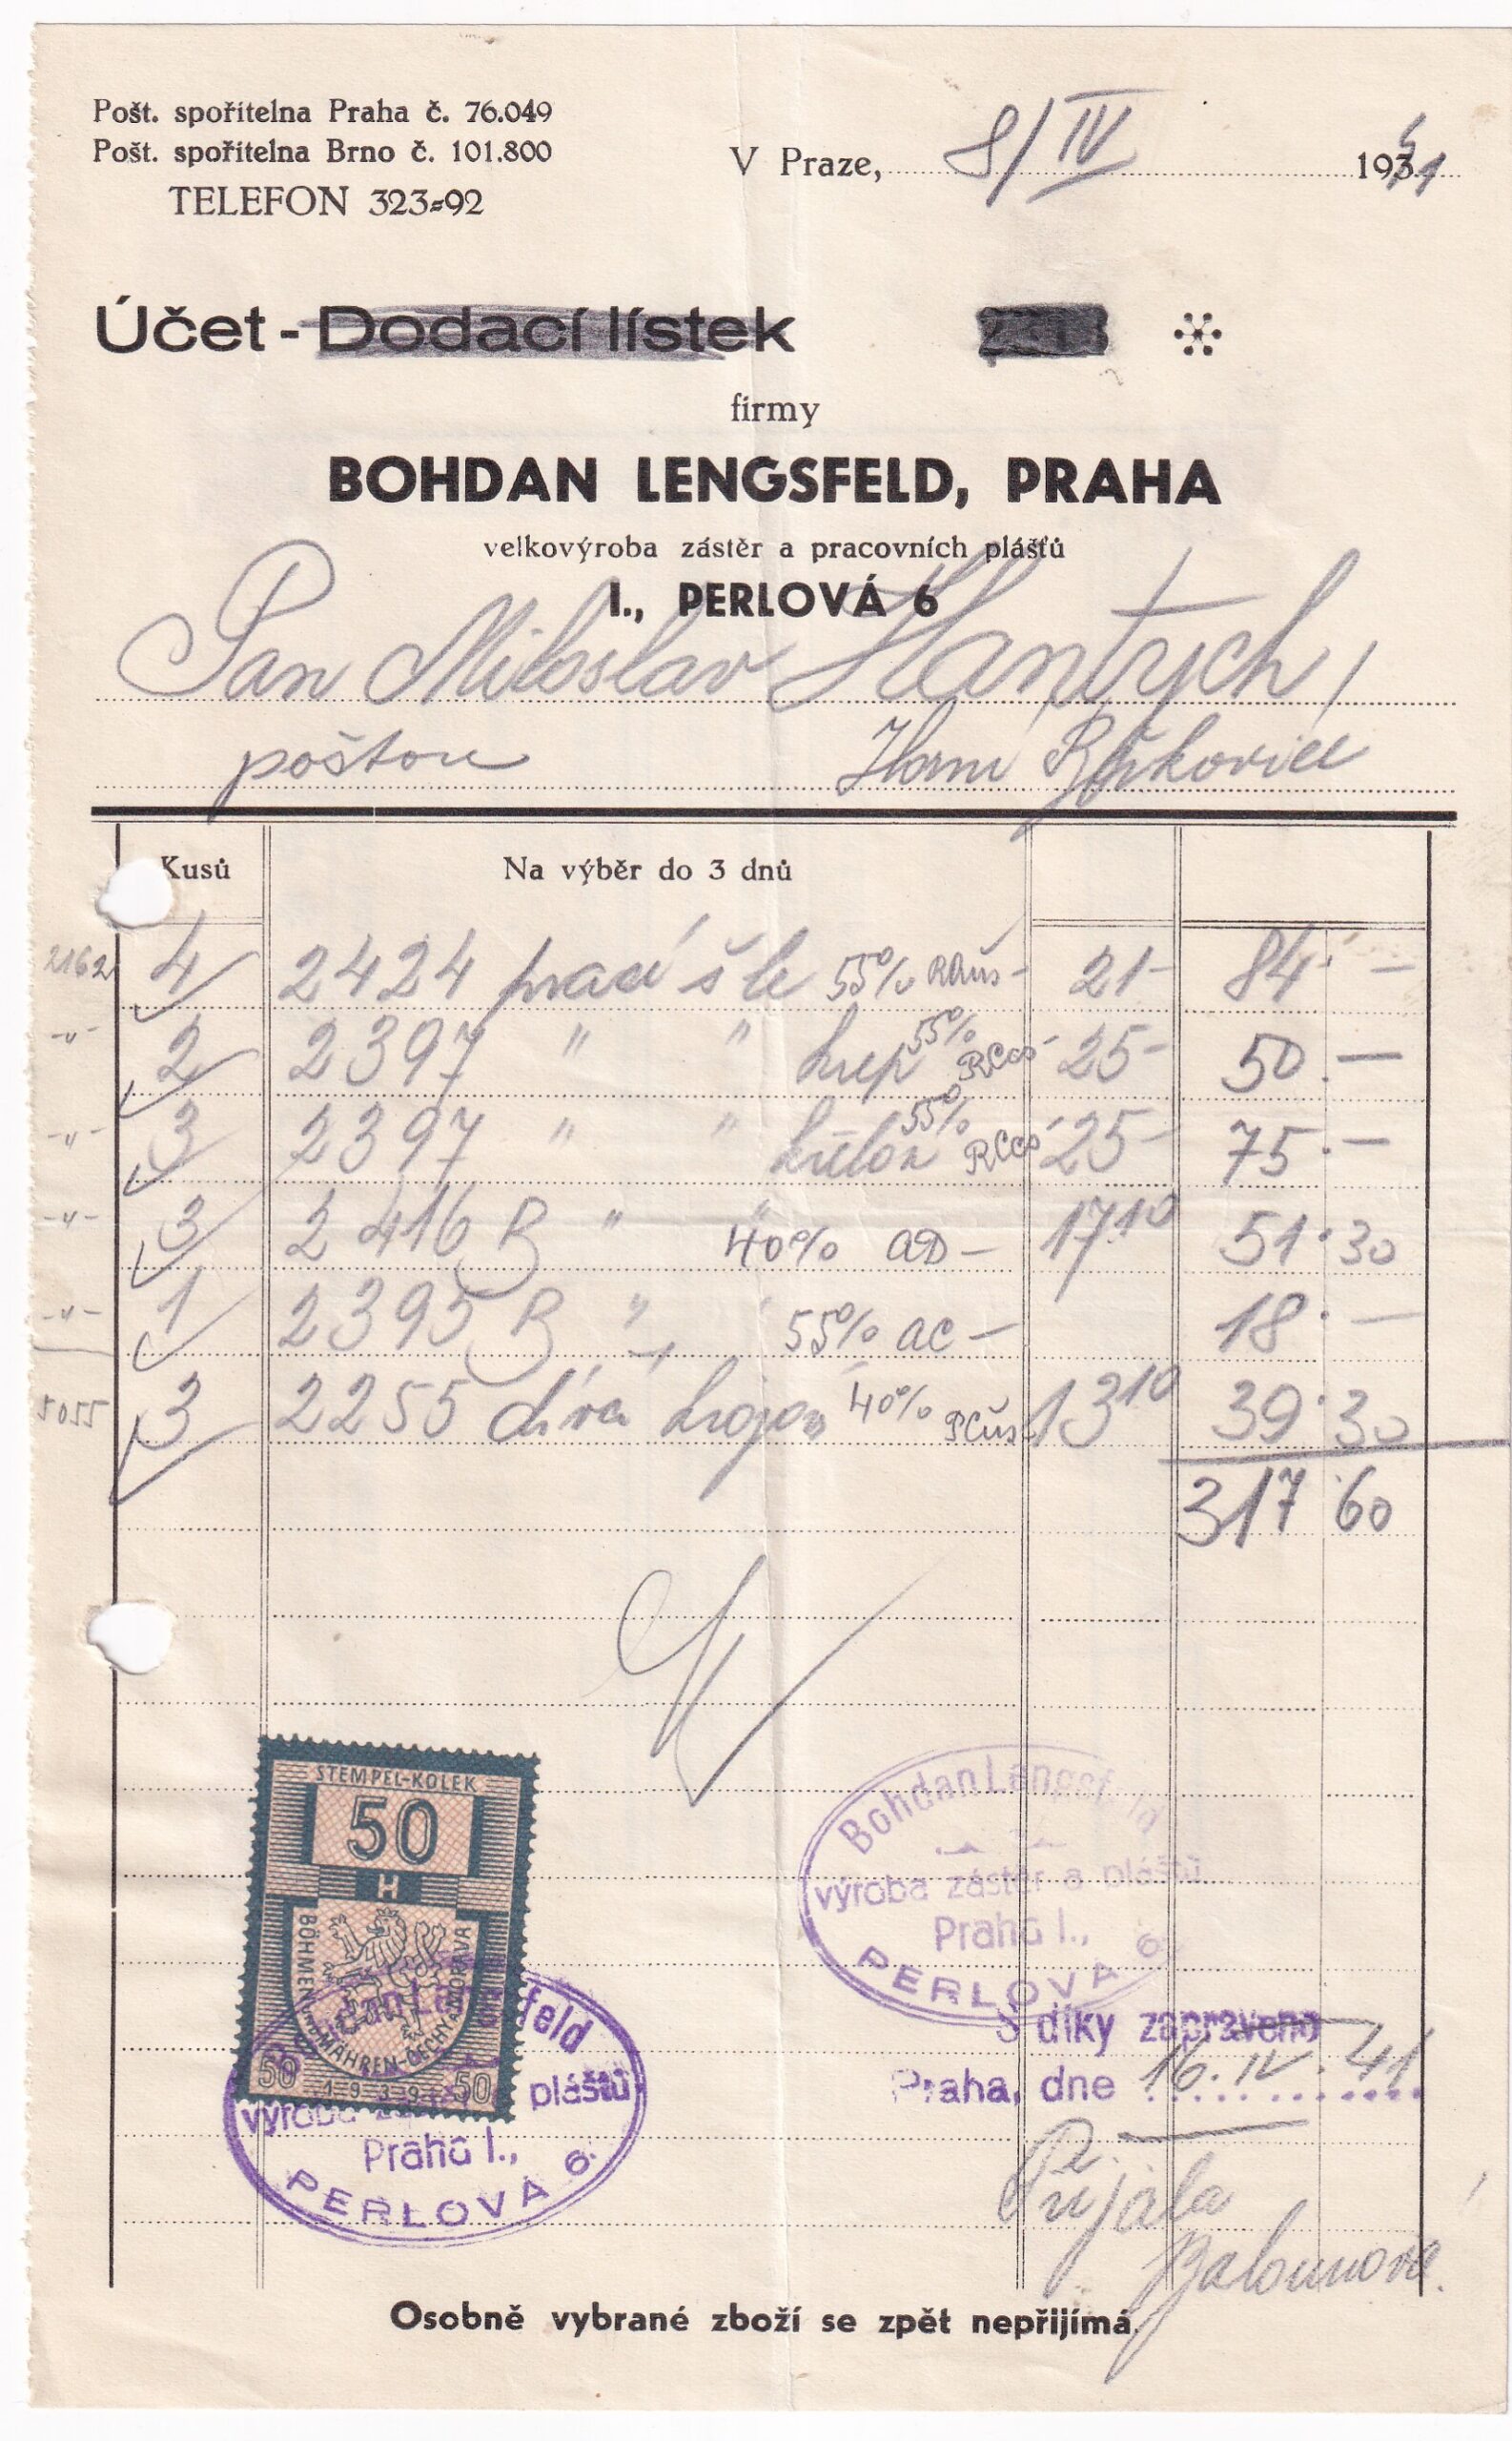 Pošt. spořitelna Praha č. 76.049
Pošt. spořitelna Brno č. 101.800
TELEFON 323-92
V Praze, 8/IV 1941
Účet - Dodací lístek
firmy
BOHDAN LENGSFELD, PRAHA
velkovýroba zástěr a pracovních plášťů
I., PERLOVÁ 6
Pan Miloslav Hantych,
poštou Horní
Kusů Na výběr do 3 dnů
2162 4 2424 prací šle 55% 21- 84.-
-"- 2 2397 " " krep 55% 25- 50.-
-"- 3 2397 " " 55% 25- 75.-
-"- 3 2416 B " " 40% AD- 17.10 51.30
-"- 1 2395 B " 55% AC- 18.-
5055 3 2255 40% 13.10 39.30
317 60
STEMPEL-KOLEK
50
H
BÖHMEN UND MÄHREN-ČECHY A MORAVA
50 1939 50
Bohdan Lengsfeld
výroba zástěr a plášťů
Praha I.,
PERLOVÁ 6.
Bohdan Lengsfeld
výroba zástěr a plášťů
Praha I.,
PERLOVÁ 6
S díky zapraveno
Praha, dne 16.IV.41
Přijala
Balounová.
Osobně vybrané zboží se zpět nepřijímá.